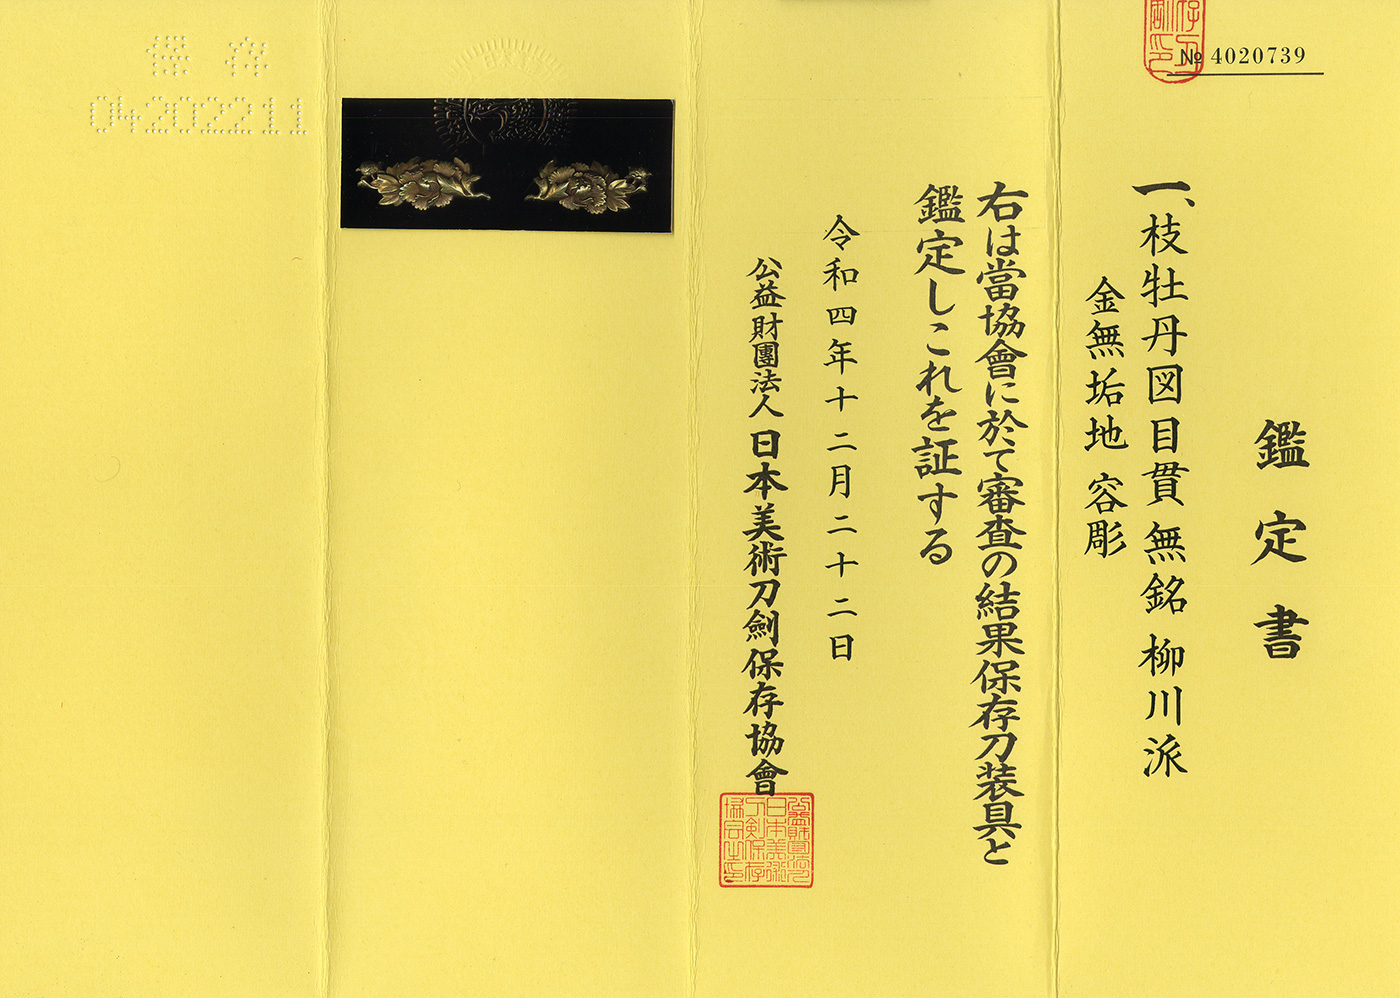 № 4020739
鑑定書
一、枝牡丹図目貫 無銘 柳川派
金無垢地 容彫
右は當協會に於て審査の結果保存刀装具と
鑑定しこれを証する
令和四年十二月二十二日
公益財團法人 日本美術刀劍保存協會
保存
04202211